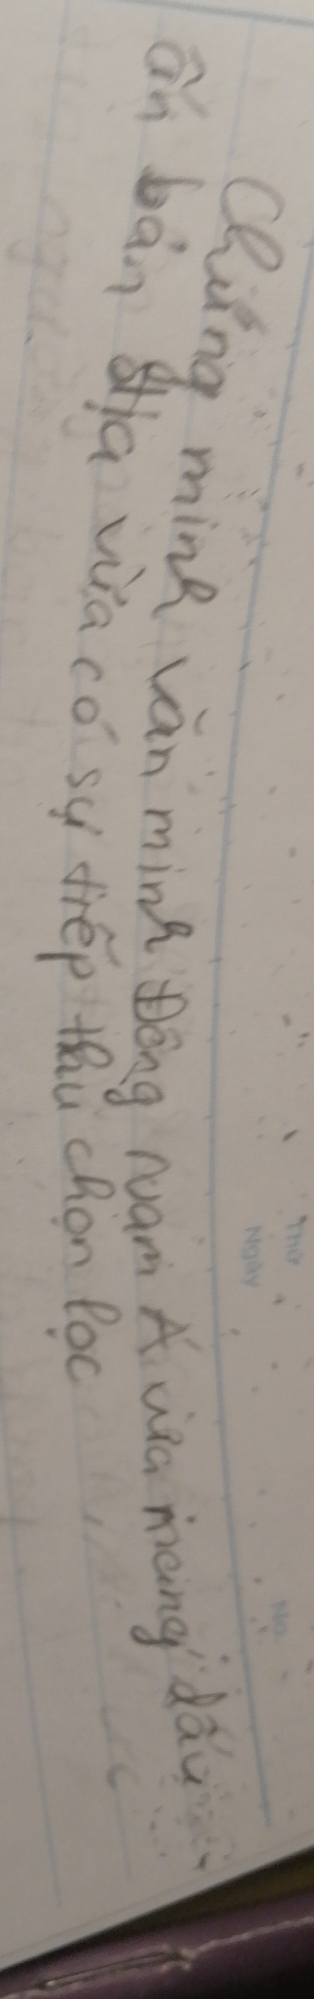 Thứ
Ngày
No.
Chứng minh văn minh Đông Nam Á vừa mang dấu
ấn bản địa vừa có sự tiếp thu chọn lọc